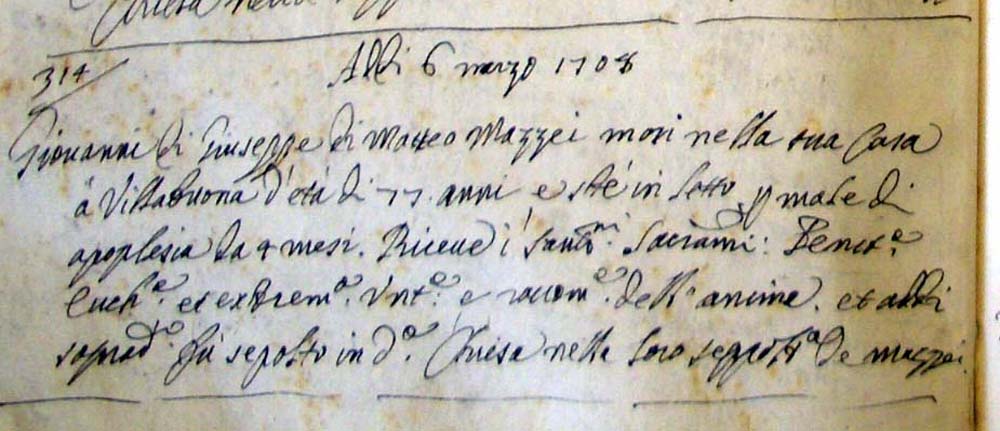 Chiesa nella
314
Addi 6 marzo 1708
Giovanni di Giuseppe di Matteo Mazzei morì nella sua Casa
à Villabuona d'età di 77 anni e sté in letto p male di
apoplesia da 4 mesi. Riceué i Santmi. Sacrami: Penitza.
Euchа. et extrema. Untе. e racome. dell'anime. et addi
sopradо. fù sepolto in da. Chiesa nella loro seppolta de mazzei